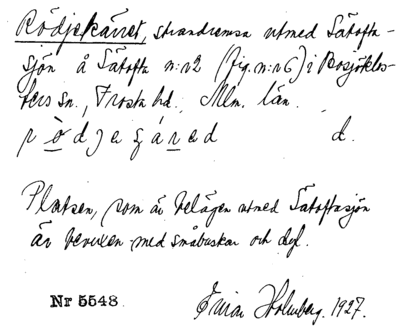 Rödjekäret, strandremsa utmed Sätofta-
sjön å Sätofta n:r 2 (fig. n:r 6) i Bosjöklos-
ters sn., Frosta hd., Mlm. län.
d.
Platsen, som är belägen utmed Sätoftasjön
är bevuxen med småbuskar och dyl.
Nr 5548
Holmberg. 1927.